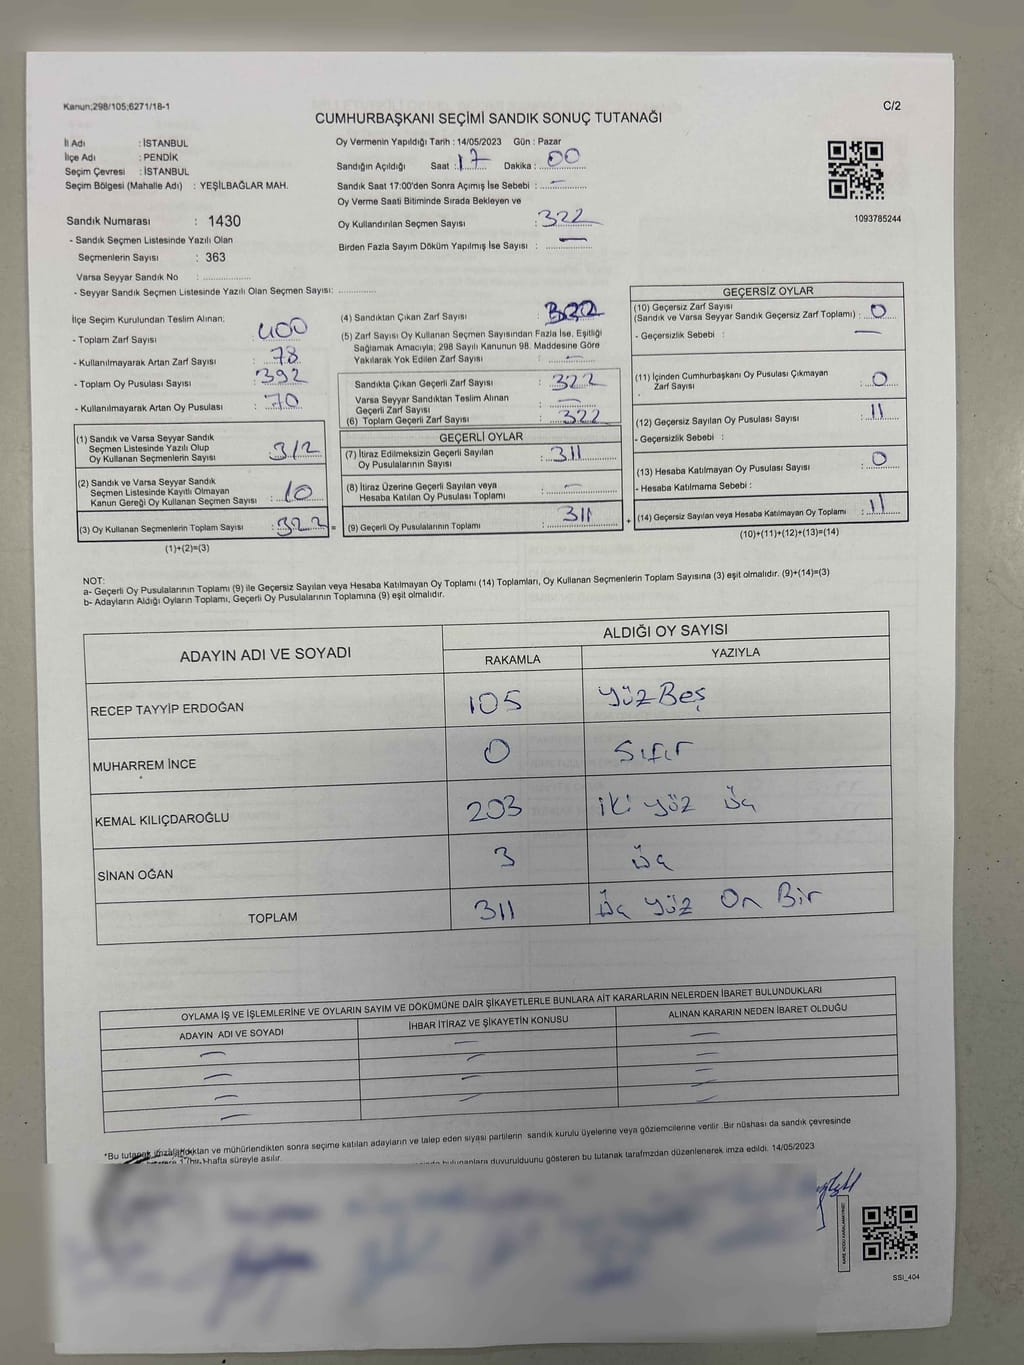 Kanun;298/105;6271/18-1
C/2
CUMHURBAŞKANI SEÇİMİ SANDIK SONUÇ TUTANAĞI
İl Adı : İSTANBUL
İlçe Adı : PENDİK
Seçim Çevresi : İSTANBUL
Seçim Bölgesi (Mahalle Adı) : YEŞİLBAĞLAR MAH.
Sandık Numarası : 1430
- Sandık Seçmen Listesinde Yazılı Olan
Seçmenlerin Sayısı : 363
Varsa Seyyar Sandık No : ..............
- Seyyar Sandık Seçmen Listesinde Yazılı Olan Seçmen Sayısı: ..............
Oy Vermenin Yapıldığı Tarih : 14/05/2023 Gün : Pazar
Sandığın Açıldığı Saat : 17 Dakika : 00
Sandık Saat 17:00'den Sonra Açımış İse Sebebi : —
Oy Verme Saati Bitiminde Sırada Bekleyen ve
Oy Kullandırılan Seçmen Sayısı : 322
Birden Fazla Sayım Döküm Yapılmış İse Sayısı : —
1093785244
İlçe Seçim Kurulundan Teslim Alınan:
- Toplam Zarf Sayısı : 400
- Kullanılmayarak Artan Zarf Sayısı : 78
- Toplam Oy Pusulası Sayısı : 392
- Kullanılmayarak Artan Oy Pusulası : 70
(1) Sandık ve Varsa Seyyar Sandık
Seçmen Listesinde Yazılı Olup
Oy Kullanan Seçmenlerin Sayısı : 312
(2) Sandık ve Varsa Seyyar Sandık
Seçmen Listesinde Kayıtlı Olmayan
Kanun Gereği Oy Kullanan Seçmen Sayısı : 10
(3) Oy Kullanan Seçmenlerin Toplam Sayısı : 322 =
(1)+(2)=(3)
(4) Sandıktan Çıkan Zarf Sayısı : 322
(5) Zarf Sayısı Oy Kullanan Seçmen Sayısından Fazla İse, Eşitliği
Sağlamak Amacıyla; 298 Sayılı Kanunun 98. Maddesine Göre
Yakılarak Yok Edilen Zarf Sayısı : —
Sandıkta Çıkan Geçerli Zarf Sayısı : 322
Varsa Seyyar Sandıktan Teslim Alınan
Geçerli Zarf Sayısı : —
(6) Toplam Geçerli Zarf Sayısı : 322
GEÇERLİ OYLAR
(7) İtiraz Edilmeksizin Geçerli Sayılan
Oy Pusulalarının Sayısı : 311
(8) İtiraz Üzerine Geçerli Sayılan veya
Hesaba Katılan Oy Pusulası Toplamı : —
(9) Geçerli Oy Pusulalarının Toplamı : 311 +
GEÇERSİZ OYLAR
(10) Geçersiz Zarf Sayısı
(Sandık ve Varsa Seyyar Sandık Geçersiz Zarf Toplamı) : 0
- Geçersizlik Sebebi : —
(11) İçinden Cumhurbaşkanı Oy Pusulası Çıkmayan
Zarf Sayısı : 0
(12) Geçersiz Sayılan Oy Pusulası Sayısı : 11
- Geçersizlik Sebebi :
(13) Hesaba Katılmayan Oy Pusulası Sayısı : 0
- Hesaba Katılmama Sebebi :
(14) Geçersiz Sayılan veya Hesaba Katılmayan Oy Toplamı : 11
(10)+(11)+(12)+(13)=(14)
NOT:
a- Geçerli Oy Pusulalarının Toplamı (9) ile Geçersiz Sayılan veya Hesaba Katılmayan Oy Toplamı (14) Toplamları, Oy Kullanan Seçmenlerin Toplam Sayısına (3) eşit olmalıdır. (9)+(14)=(3)
b- Adayların Aldığı Oyların Toplamı, Geçerli Oy Pusulalarının Toplamına (9) eşit olmalıdır.
ADAYIN ADI VE SOYADI
ALDIĞI OY SAYISI
RAKAMLA YAZIYLA
RECEP TAYYİP ERDOĞAN 105 YüzBeş
MUHARREM İNCE 0 Sıfır
KEMAL KILIÇDAROĞLU 203 iki yüz üç
SİNAN OĞAN 3 üç
TOPLAM 311 üç yüz On Bir
OYLAMA İŞ VE İŞLEMLERİNE VE OYLARIN SAYIM VE DÖKÜMÜNE DAİR ŞİKAYETLERLE BUNLARA AİT KARARLARIN NELERDEN İBARET BULUNDUKLARI
ADAYIN ADI VE SOYADI İHBAR İTİRAZ VE ŞİKAYETİN KONUSU ALINAN KARARIN NEDEN İBARET OLDUĞU
*Bu tutanak imzalandıktan ve mühürlendikten sonra seçime katılan adayların ve talep eden siyasi partilerin sandık kurulu üyelerine veya gözlemcilerine verilir .Bir nüshası da sandık çevresinde
hafta süreyle asılır.
bulunanlara duyurulduunu gösteren bu tutanak tarafımzdan düzenlenerek imza edildi. 14/05/2023
SSİ_404